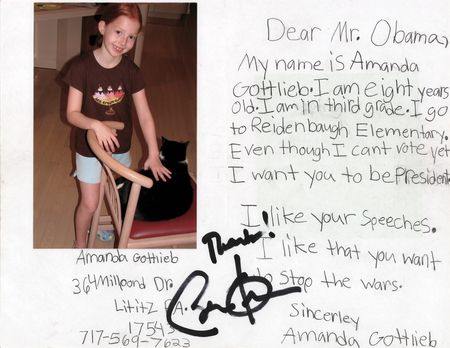 Dear Mr. Obama,
My name is Amanda
Gottlieb. I am eight years
old. I am in third grade. I go
to Reidenbaugh Elementary.
Even though I cant vote yet
I want you to be President.
I like your speeches.
I like that you want
to stop the wars.
Sincerley
Amanda Gottlieb
Thanks!
Amanda Gottlieb
364 Millpond Dr.
Lititz PA.
17543
717-569-7623